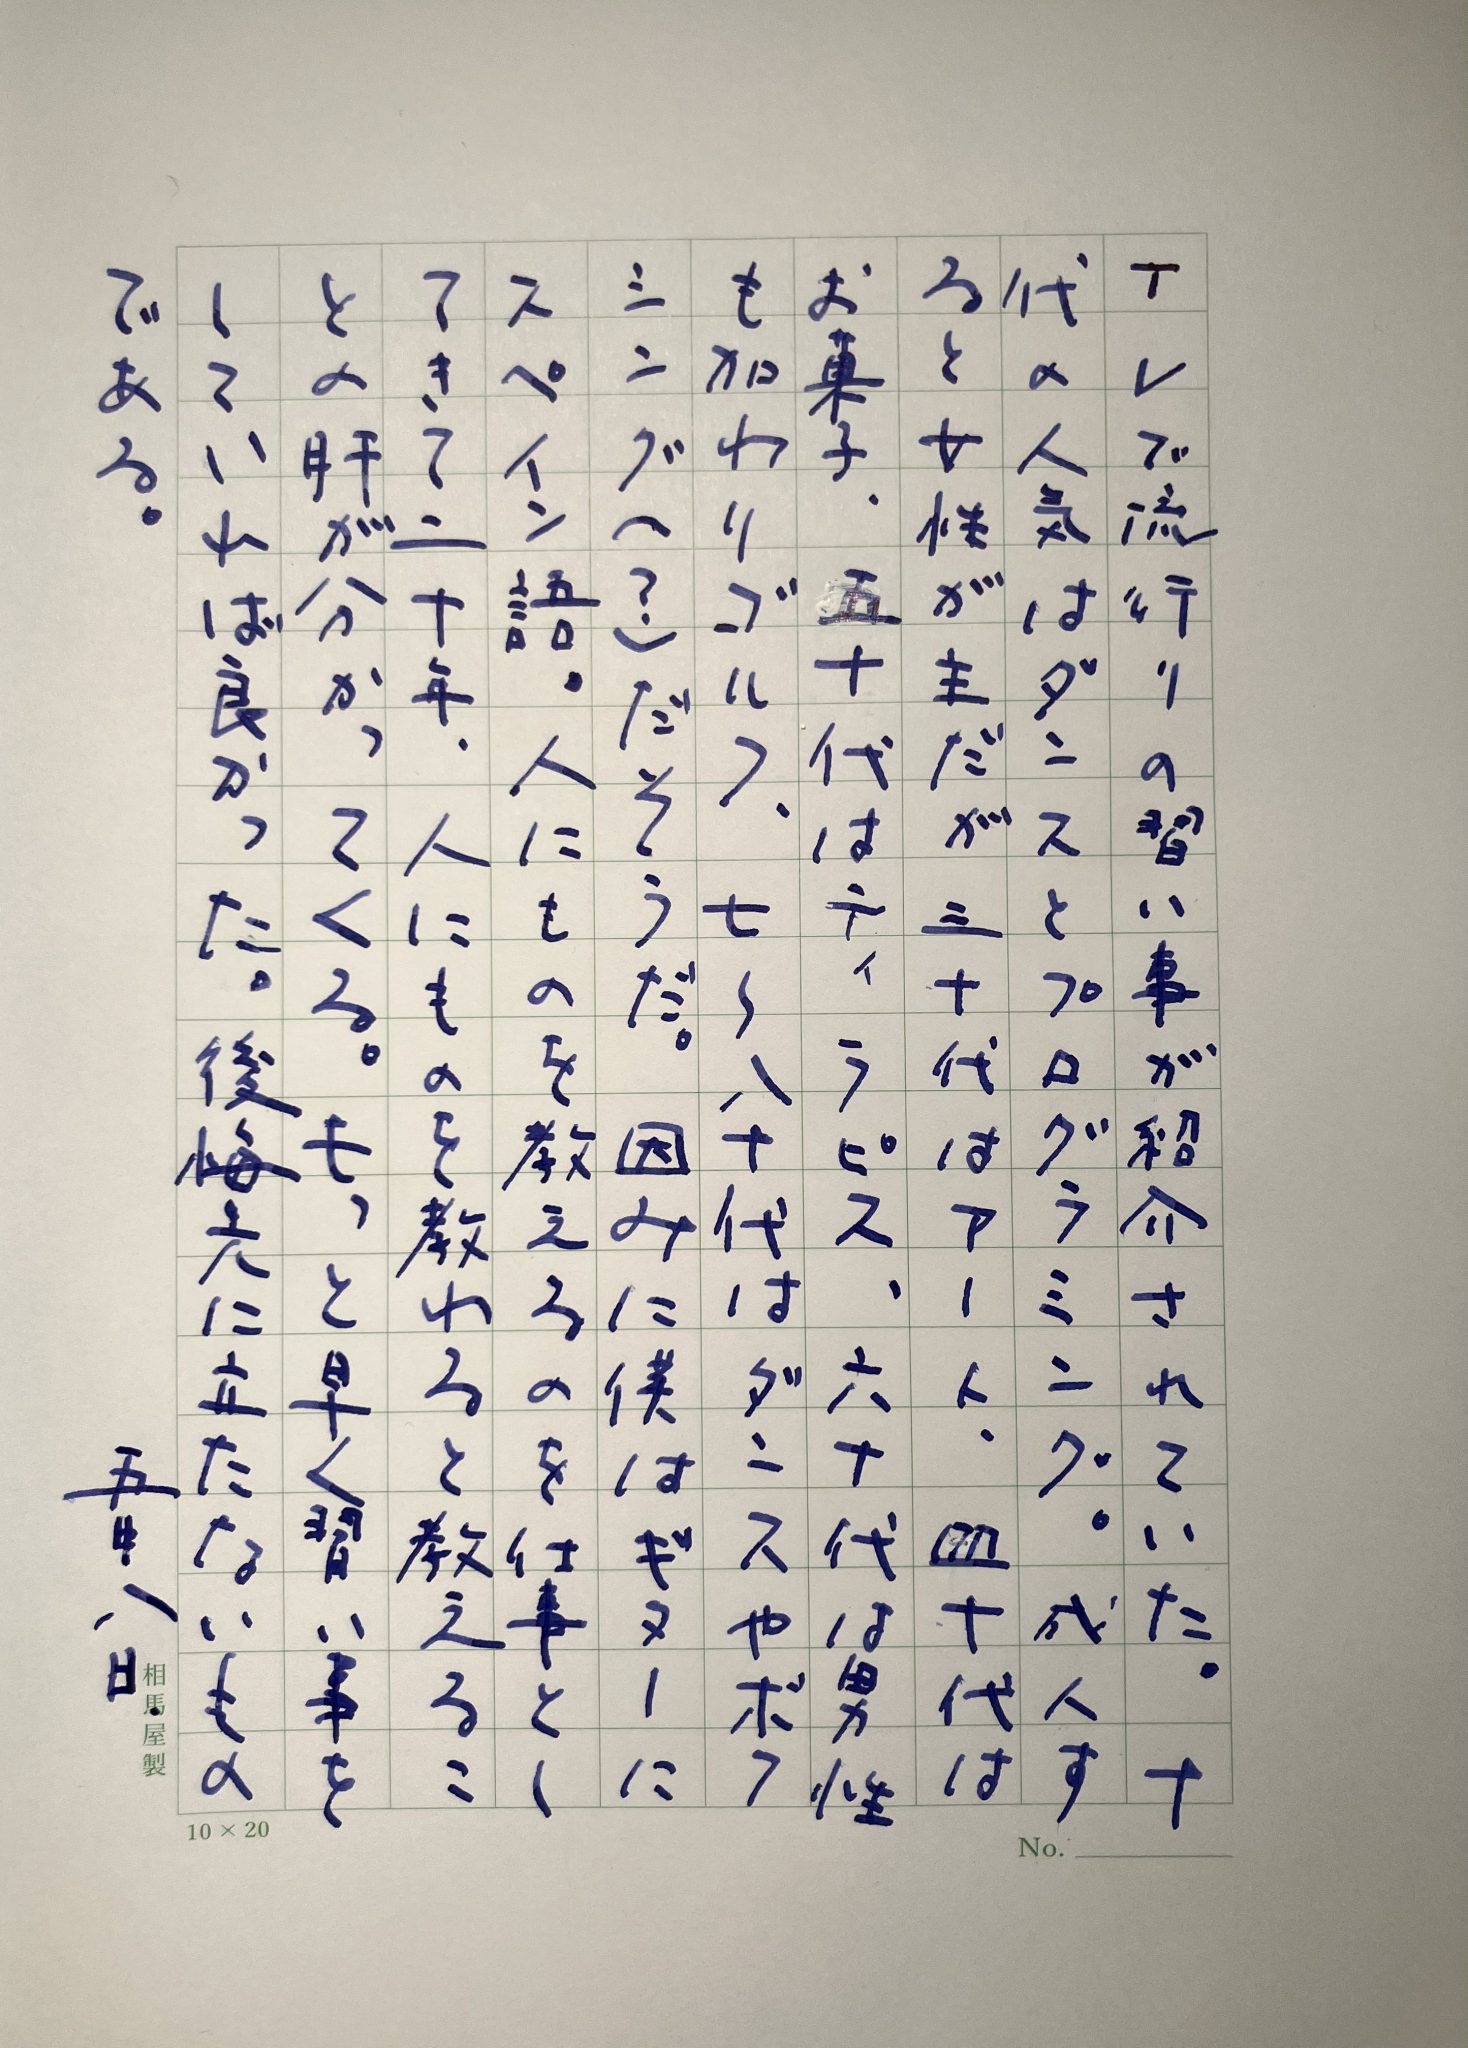 テレビで流行りの習い事が紹介されていた。十
代の人気はダンスとプログラミング。成人す
ると女性が主だが三十代はアート、四十代は
お菓子、五十代はティラピス、六十代は男性
も加わりゴルフ、七〜八十代はダンスやボク
シング(?)だそうだ。因みに僕はギターに
スペイン語。人にものを教えるのを仕事とし
てきて二十年、人にものを教わると教えるこ
との肝が分かってくる。もっと早く習い事を
していれば良かった。後悔先に立たないもの
である。
五月八日
相馬屋製
10×20
No.